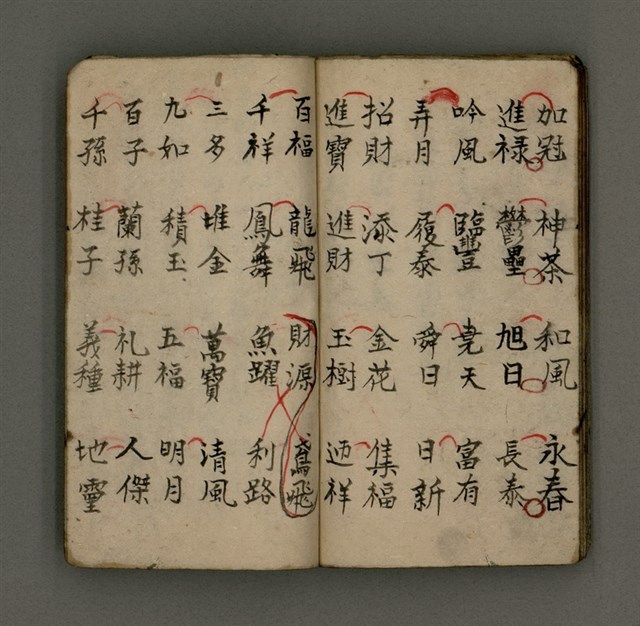 加冠 神茶 和風 永春
進祿 鬱壘 旭日 長泰
吟風 臨豐 堯天 富有
弄月 履泰 舜日 日新
招財 添丁 金花 集福
進寶 進財 玉樹 迎祥
百福 龍飛 財源 鳶飛
千祥 鳳舞 魚躍 利路
三多 堆金 萬寶 清風
九如 積玉 五福 明月
百子 蘭孫 礼耕 人傑
千孫 桂子 義種 地靈